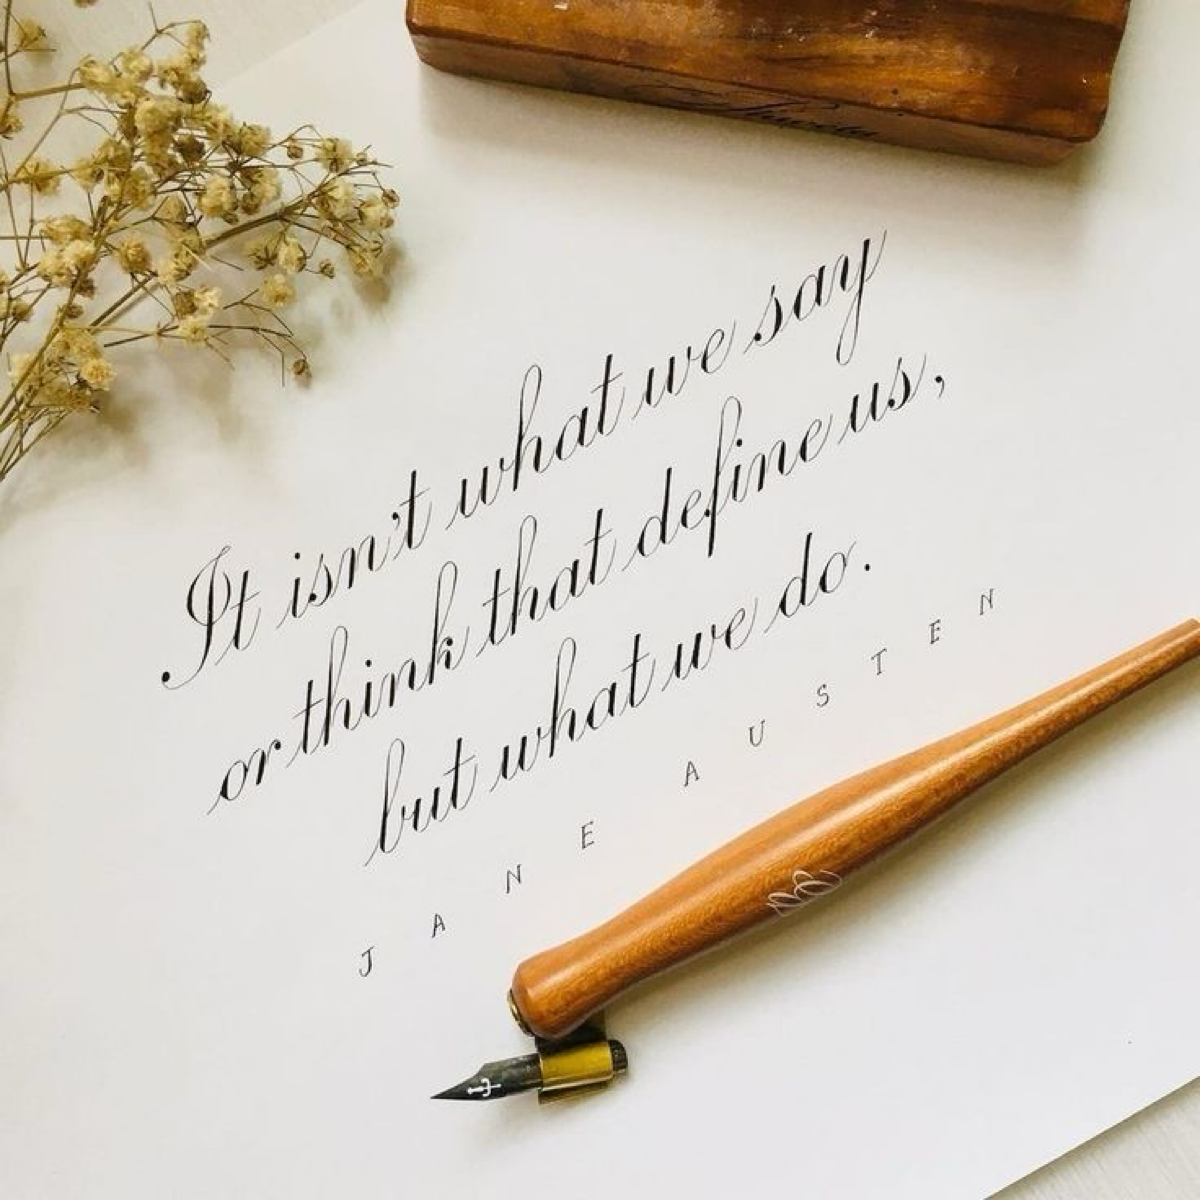 It isn't what we say
or think that define us,
but what we do.
JANE AUSTEN